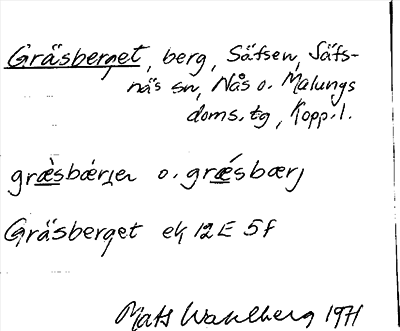 Gräsberget, berg, Säfsen, Säfs-
näs sn, Nås o. Malungs
doms. tg, Kopp. l.
græ̀sbær̨en o. grǽsbærj
Gräsberget ek 12E 5f
Mats Wahlberg 1971